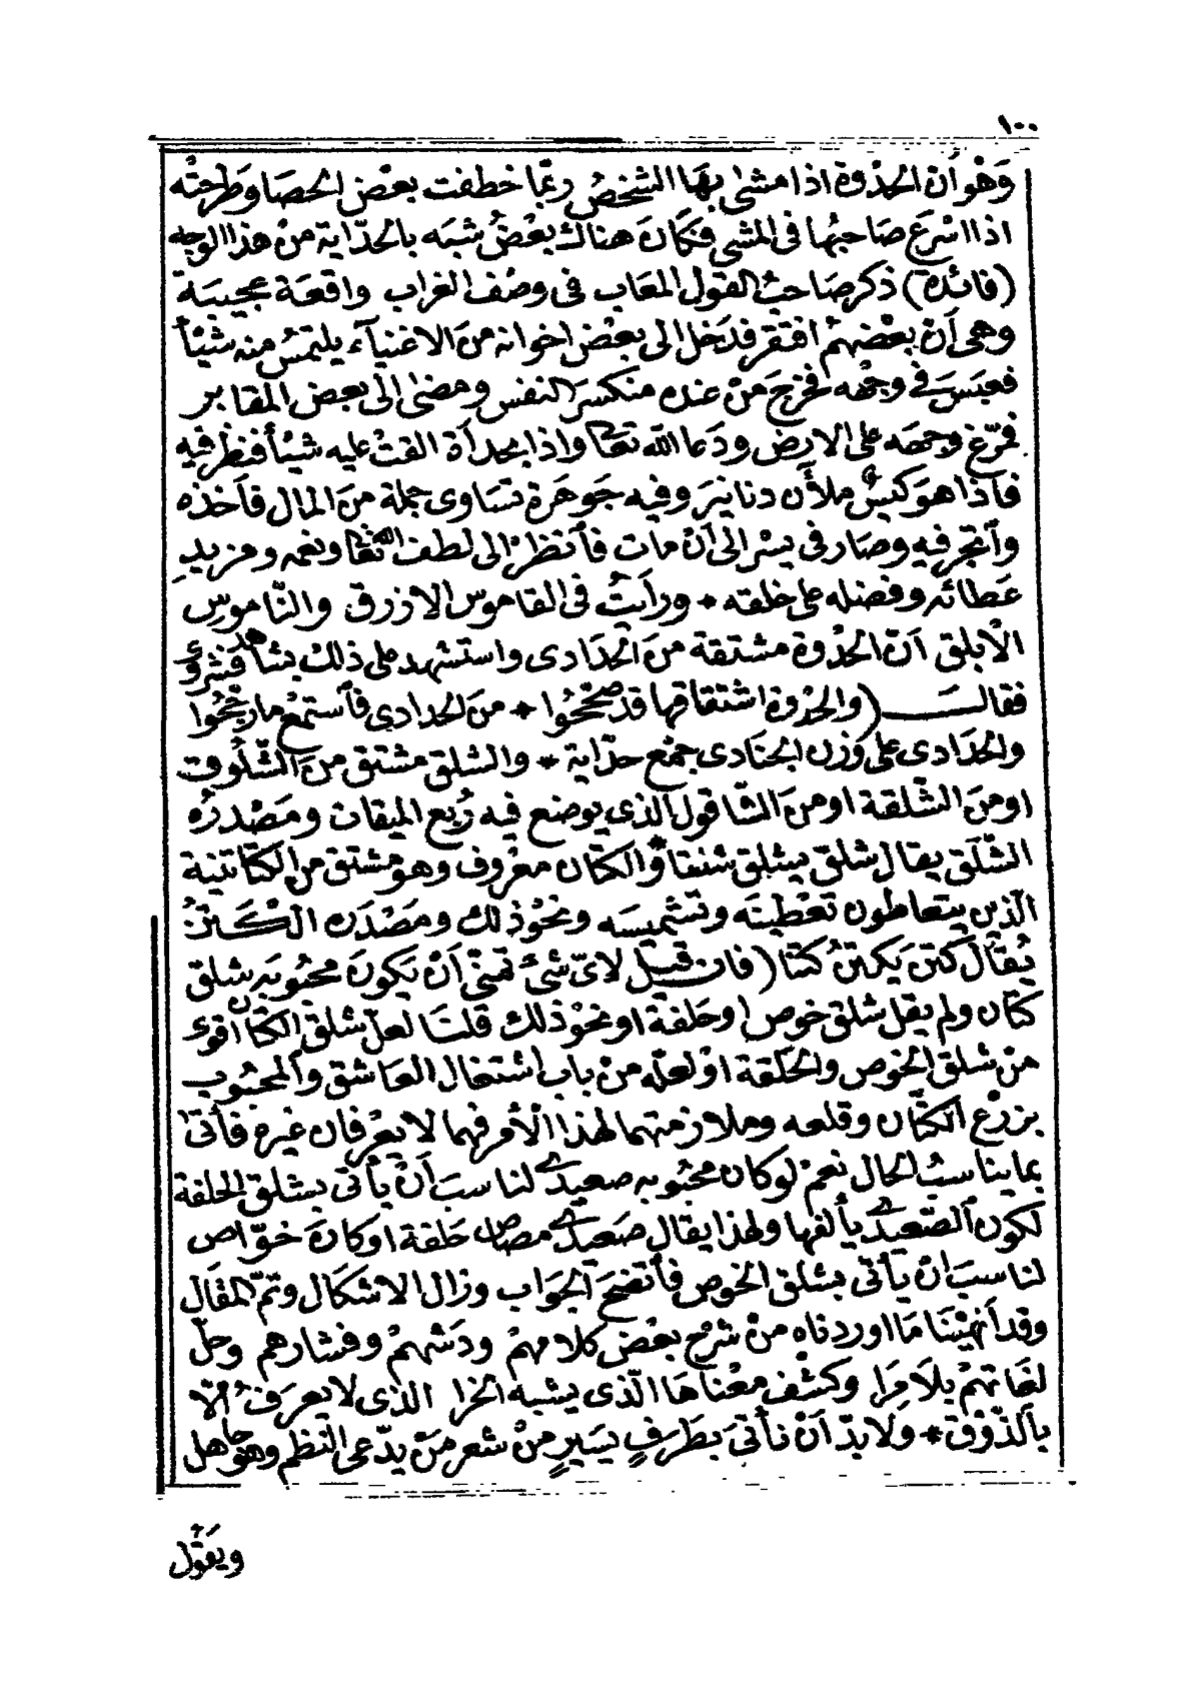 ١٠٠
وَهُوَ أن الحذوة اذا مشى بها الشخص ربمّا خطفت بعْض الحصَا وطرحته
اذا اسْرعَ صَاحبُها فى المشى فكَانَ هناك بعْضُ شبَه بالحدّاية منْ هذا الوجه
(فائدة) ذكر صَاحبُ القول المعَاب فى وصْف الغراب واقعَة عجيبَة
وهى أنّ بعْضهمْ افتقر فدَخل الى بعْض اخوانه منَ الاغنيآء يلتمسُ منه شيْأ
فعبَسَ فى وجْهه فخرَجَ منْ عنده منكسرَ النفس ومضىٰ الىٰ بعض المقابر
فمرّغ وجهَه على الارض ودَعا اللّٰه تعالى واذا بحدأة القتْ عليه شيْأ فنظر فيه
فاذا هوَ كيسٌ ملأن دنانيرَ وفيه جَوهَرة تسَاوى جملة منَ المال فآخذه
وآتجر فيه وصَار فى يسْر الى أنْ مات فآنظرْ الى لطف اللّٰه تعالى ونعمه ومزيدِ
عَطائه وفضله على خلقه * ورأيتُ فى القاموس الازرق والنّاموسِ
الابلق أنّ الحذوة مشتقة منَ الحدَادى واستشهد على ذلك بشاهد فشروى
فقالــــَ (والحذوة اشتقاقها قد صَحّحُوا * منَ الحدادى فآستمعْ ما رجّحُوا
والحدَادى على وَزن الجنادى جمْع حدّاية * والشلق مشتق منَ الشّلُوق
او منَ الشّلقة او منَ الشّاقول الذى يوضع فيه رُبع الميقات ومَصْدرُه
الشّلَق يقال شلق يشلق شنقا والكتان معْروف وهو مشتق من الكتاتنية
الّذين يتعاطون تعْطينَه وتشْميسَه ونحوْ ذلك ومَصْدَره الكَــتنُ
يُقال كَتن يَكتنُ كتنا (فان قيل لاىّ شئ تمنّى أنْ يَكونَ محبُوبه بشلق
كتّان ولم يقل شلق خوص او حَلفة او نحوْ ذلك قلتَا لعلّ شلق الكتّان اقوى
منْ شلق الخوص والحَلفة اوْ لعلّه منْ باب اشتغال العَاشق والمحْبُوب
بزرْع الكتّان وقلعه وملازمتهما لهذا الأمر فهما لا يعْرفان غيره فأتى
بما يناسبُ الحال نعَمْ لوْ كان محبُوبه صعيدى لناسبَ أنْ يأتى بشلق الحلفة
لكون الصّعيدى يألفها ولهذا يقال صَعيدى مصاص حَلفة او كانَ خوّاص
لناسبَ انْ يأتى بشلق الخوص فآتضحَ الجَواب وزال الاشكال وتمّ المقَال
وقد أنهيْنَا مَا اوردناه منْ شرْح بعْض كلامهمْ ودَشْهمْ وفشارهم وحلّ
لغَاتهمْ بلَا مِرَا وكشْف معْناهَا الّذى يشبه الخرا الذى لا يعرَفُ الاّ
بآلذّوْق * وَلا بدّ أنْ نأتىَ بطَرفٍ يَسيرٍ منْ شعر منْ يدّعى النظم وهو جاهل
ويَقوُل